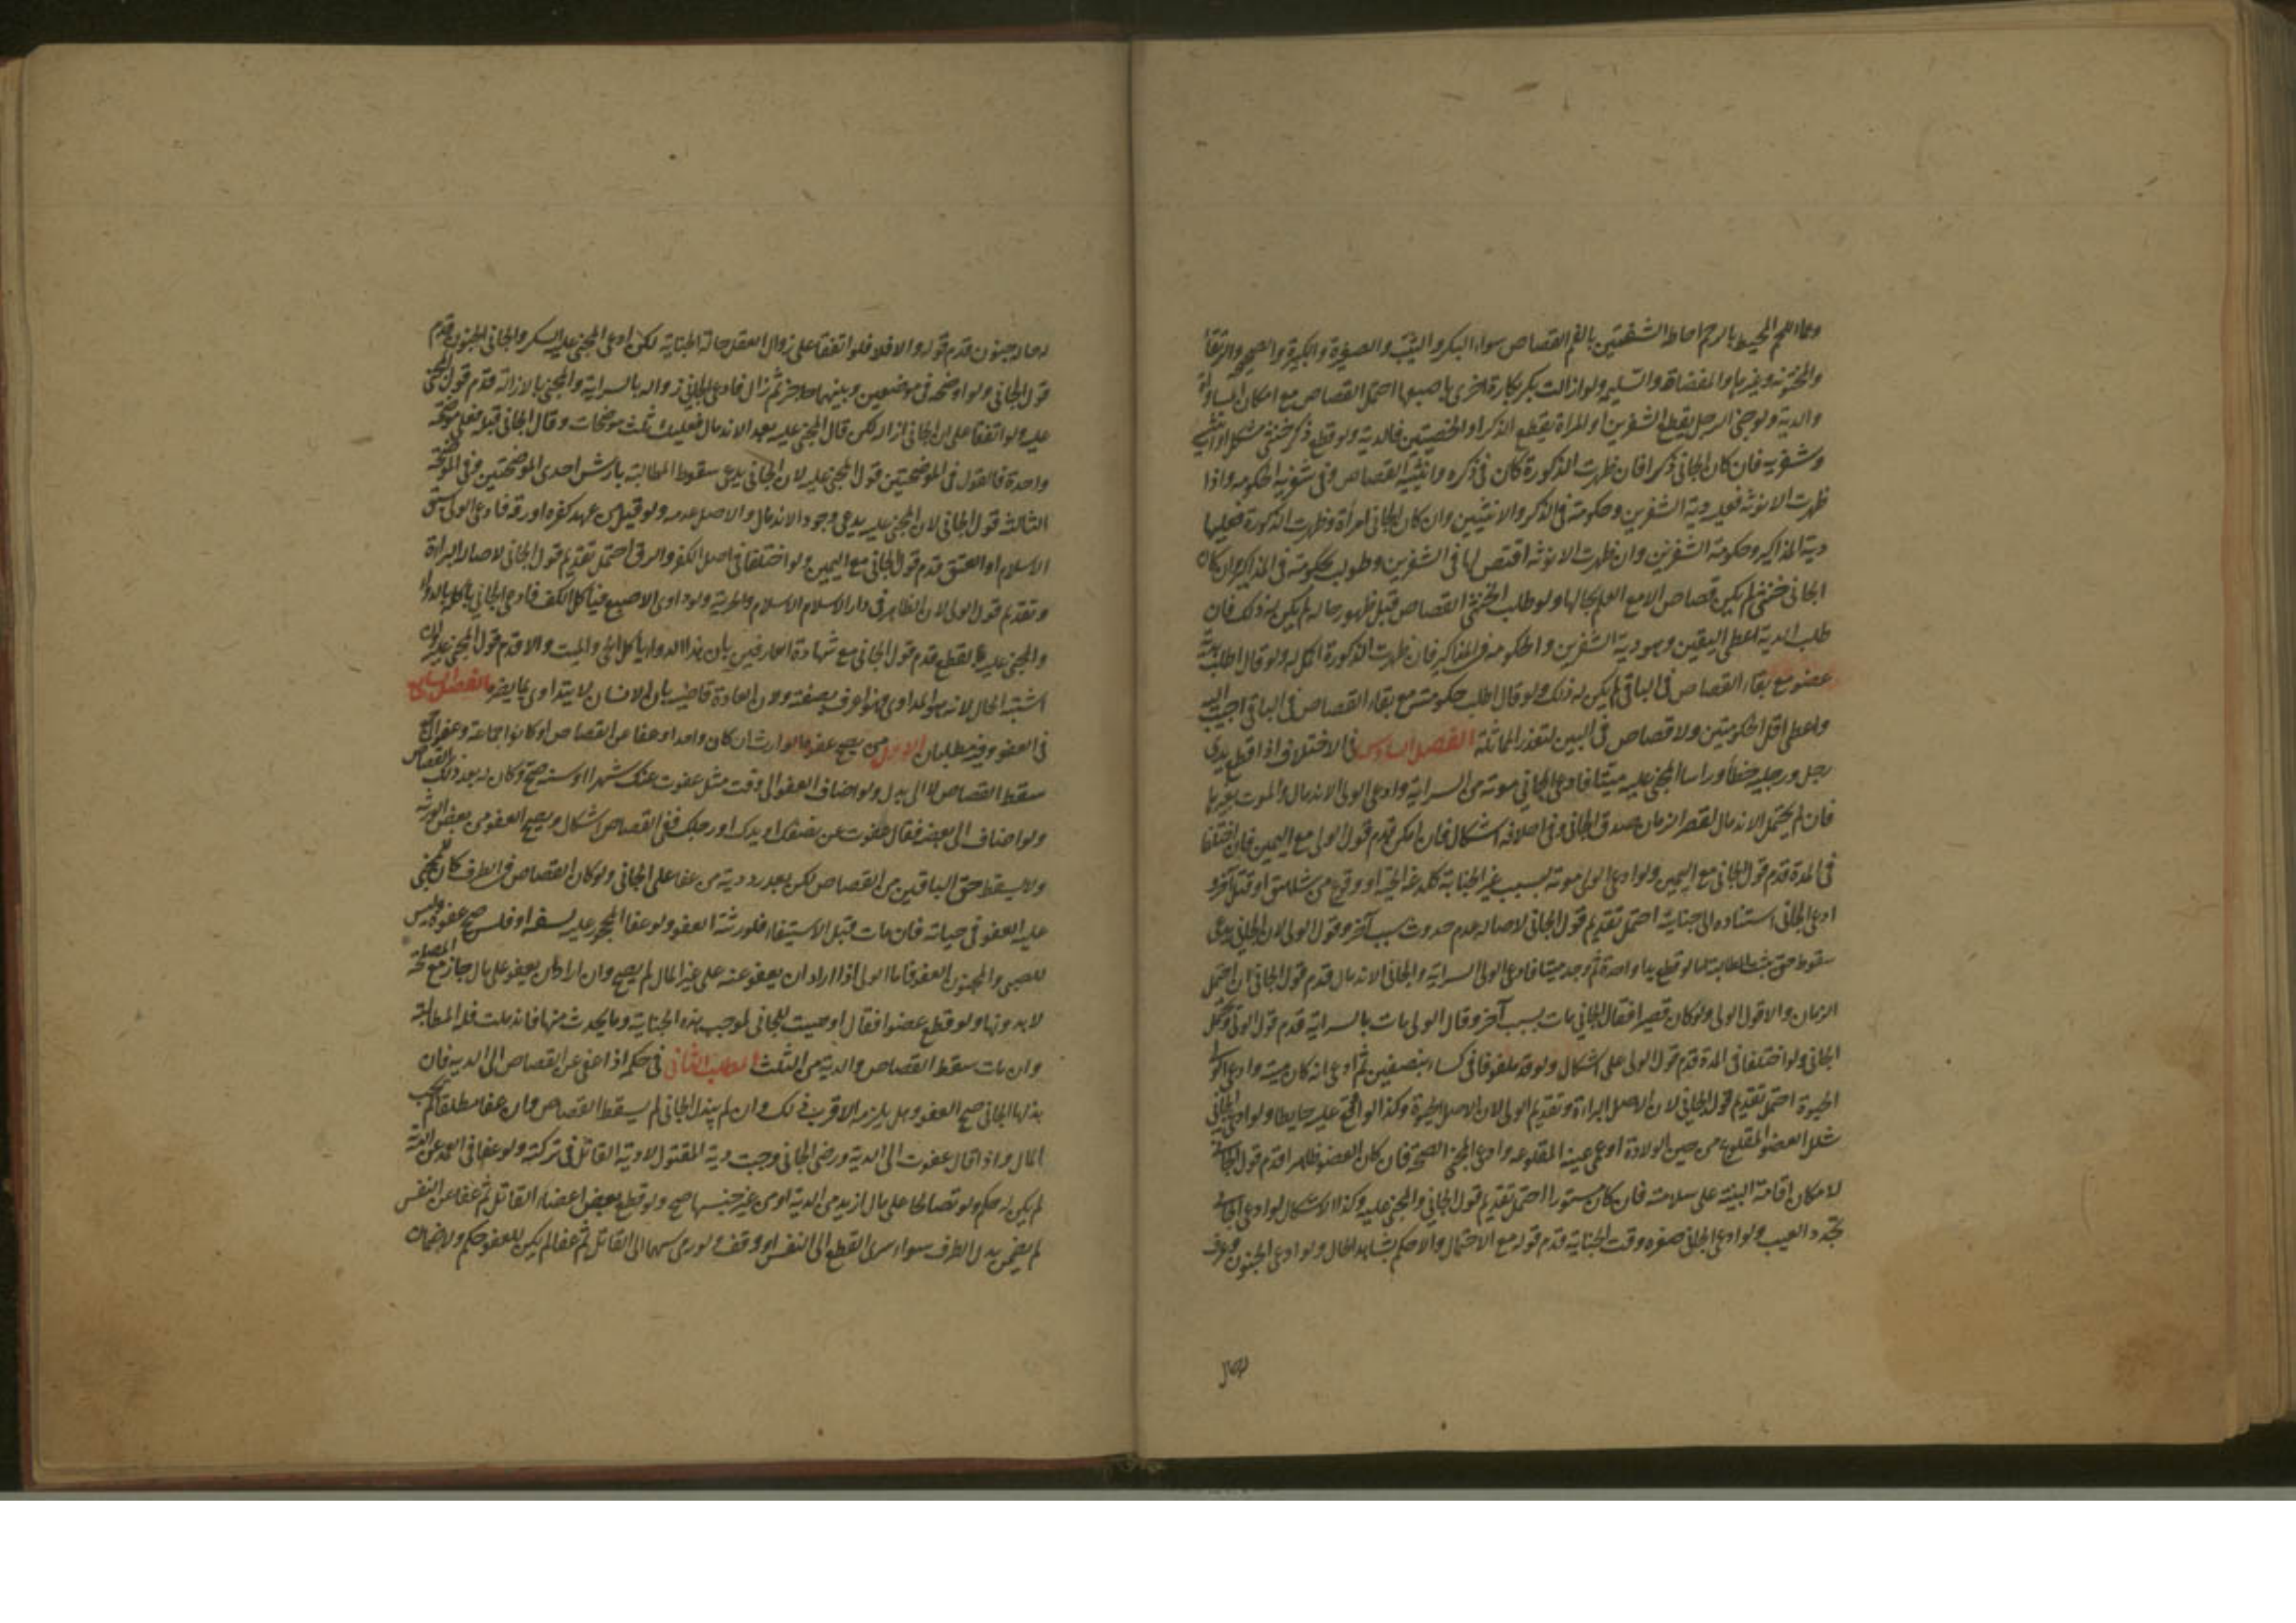 وهما اللحم المحيط بالرحم احاطة الشفتين بالفم القصاص سواء البكر والثيب والصغيرة والكبيرة والصحيحة والرتقاء
والمختونة وغيرها والمفضاة والسليمة ولو ازالت بكر بكارة اخرى باصبعها احتمل القصاص مع امكان المساواة
والدية ولو جنى الرجل بقطع الشفرين او المراة بقطع الذكر او الخصيتين فالدية ولو قطع ذكر خنثى مشكل او انثييه
وشفريه فان كان الجاني ذكرا فان ظهرت الذكورة كان في ذكره وانثييه القصاص وفي شفريه الحكومه واذا
ظهرت الانوثه فعليه دية الشفرين وحكومة في الذكر والانثيين وان كان الجاني امرأة وظهرت الذكورة فعليها
دية المذاكير وحكومة الشفرين وان ظهرت الانوثه اقتص لها في الشفرين وطولب بحكومة في المذاكير وان كان
الجاني خنثى لم يكن قصاص الا مع العلم بحالها ولو طلب الخنثى القصاص قبل ظهور حاله لم يكن له ذلك فان
طلب الدية اعطى اليقين وهو دية الشفرين والحكومه في المذاكير فان ظهرت الذكورة اكمل له ولو قال اطلب دية
عضو مع بقاء القصاص في الباقي لم يكن له ذلك ولو قال اطلب حكومة مع بقاء القصاص في الباقي اجيب اليه
واعطى اقل الحكومتين ولا قصاص في اليين لتعذر المماثلة الفصل السادس في الاختلاف اذا قطع يدي
رجل ورجليه خطأ ورأسا المجني عليه ميتا فادعى الجاني موته من السراية وادعى الولي الاندمال والموت بغيرها
فان لم يحتمل الاندمال لقصر الزمان صدق الجاني وفي احلافه اشكال فان امكن قدم قول الولي مع اليمين فان اختلفا
في المدة قدم قول الجاني مع اليمين ولو ادعى الولي موته بسبب غير الجناية كلدغ الحية او وقوع من شاهق او قتل آخر و
ادعى الجاني استناده الى جناية احتمل تقديم قول الجاني لاصالة عدم حدوث سبب آخر وقول الولي لان الجاني يدعى
سقوط حق يثبت المطالبة اما لو قطع يدا واحدة ثم وجد ميتا فادعى الولي السراية والجاني الاندمال قدم قول الجاني ان احتمل
الزمان والا قول الولي ولو كان قصيرا فقال الجاني مات بسبب آخر وقال الولي مات بالسراية قدم قول الولي
الجاني ولو اختلفا في المدة قدم قول الولي على اشكال ولو قد ملفوفا في كساء بنصفين ثم ادعى انه كان ميتا وادعى الولي
الحيوة احتمل تقديم قول الجاني لان الاصل البراءة وتقديم الولي لان الاصل الحيوة وكذا لو القى عليه حايطا ولو ادعى الجاني
شلل العضو المقلوع من حين الولادة او عمى عينه المقلوعه وادعى المجني الصحة فان كان العضو ظاهرا قدم قول الجاني
لامكان اقامة البينة على سلامته فان كان مستورا احتمل تقديم قول الجاني والمجني عليه وكذا الاشكال لو ادعى الجاني
تجدد العيب ولو ادعى الجاني صغره وقت الجناية قدم قوله مع الاحتمال والا حكم بشاهد الحال ولو ادعى الجنون وعرف
له حال جنون قدم قوله والا فلا فلو اتفقا على زوال العقل حالة الجناية لكن ادعى المجني عليه السكر والجاني الجنون قدم
قول الجاني ولو اوضحه في موضعين وبينهما حاجز ثم زال فادعى الجاني زواله بالسراية والمجني بالازالة قدم قول المجني
عليه ولو اتفقا على ان الجاني ازاله لكن قال المجني عليه بعد الاندمال فعليك ثلث موضحات وقال الجاني قبله فعلي موضحة
واحدة فالقول في الموضحتين قول المجني عليه لان الجاني يدعى سقوط المطالبة بارش احدى الموضحتين وفي الموضحة
الثالث قول الجاني لان المجني عليه يدعى وجود الاندمال والاصل عدمه ولو قتل من عهد كفره او رقه فادعى الولي سبق
الاسلام او العتق قدم قول الجاني مع اليمين ولو اختلفا في اصل الكفر والرق احتمل تقديم قول الجاني لاصالة البراءة
وتقديم قول الولي لان الظاهر في دار الاسلام الاسلام والحرية ولو داوى الاصبع فتآكل الكف فادعى الجاني تآكله بالدواء
والمجني عليه بالقطع قدم قول الجاني مع شهادة العارفين بان هذا الدواء يأكل الحي والميت والا قدم قول المجني عليه وان
اشتبه الحال لانه هو المداوى فهو اعرف بصفته ولان العادة قاضية بان الانسان لا يتداوى بما يضره الفصل السابع
في العفو وفيه مطلبان الاول من يصح عفوه الوارث ان كان واحدا وعفا عن القصاص او كانوا جماعة وعفوا الجميع
سقط القصاص لا الى بدل ولو اضاف العفو الى وقت مثل عفوت عنك شهرا او سنة صح وكان له بعد ذلك القصاص
ولو اضاف الى بعضه فقال عفوت عن نصفك او يدك او رجلك ففي القصاص اشكال ويصح العفو من بعض الورثه
ولا يسقط حق الباقين من القصاص لكن بعد رد دية من عفا على الجاني ولو كان القصاص في الطرف كان للمجني
عليه العفو في حياته فان مات قبل الاستيفاء فلورثته العفو ولو عفا المحجور عليه لسفه او فلس صح عفوه وليس
للصبي والمجنون العفو فاما الولي اذا اراد ان يعفو عنه على غير المال لم يصح وان اراد ان يعفو على مال جاز مع المصلحة
لا بدونها ولو قطع عضوا فقال اوصيت للجاني بموجب هذه الجناية وما يحدث منها فاندملت فله المطالبة
وان مات سقط القصاص والدية من الثلث المطلب الثاني في حكمه اذا عفى عن القصاص الى الدية فان
بذلها الجاني صح العفو وهل يلزمه الاقرب ذلك وان لم يبذل الجاني لم يسقط القصاص وان عفا مطلقا لم يجب
المال واذا قال عفوت الى الدية ورضى الجاني وجبت دية المقتول لا دية القاتل في تركته ولو عفا في العمد عن الدية
لم يكن له حكم ولو تصالحا على مال ازيد من الدية او من غير جنسها صح ولو قطع بعض اعضاء القاتل ثم عفا عن النفس
لم يضمن بدل الطرف سواء سرى القطع الى النفس او وقف ولو رمى سهما الى القاتل ثم عفا لم يكن للعفو حكم ولا ضمان